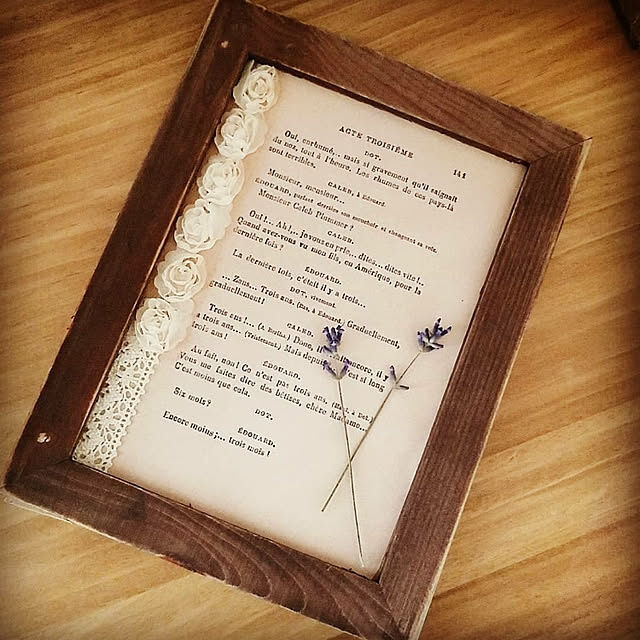 ACTE TROISIÈME
141
DOT.
Oui, enrhumé,... mais si gravement qu'il saignait
du nez, tout à l'heure. Les rhumes de ces pays-là
sont terribles.
CALEB, à Édouard.
Monsieur, monsieur...
ÉDOUARD, parlant derrière son mouchoir et changeant sa voix.
Monsieur Caleb Plummer?
CALEB.
Oui!... Ah!... je vous en prie... dites... dites vite!...
Quand avez-vous vu mon fils, en Amérique, pour la
dernière fois?
ÉDOUARD.
La dernière fois, c'était il y a trois...
DOT, vivement.
... Zans... Trois ans. (Bas, à Édouard.) Graduellement,
graduellement!
CALEB.
Trois ans!... (A Bertha.) Donc, il encore, il y
a trois ans... (Tristement.) Mais depuis est si long
trois ans!
ÉDOUARD.
Au fait, non! Ce n'est pas trois ans. (Bas, à Dot.)
Vous me faites dire des bêtises, chère Madame...
C'est moins que cela.
DOT.
Six mois?
ÉDOUARD.
Encore moins;... trois mois!